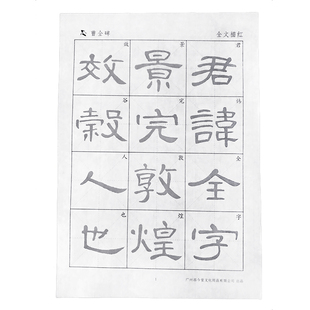 曹全碑
全文描红
君諱全字
君讳全字
景完敦煌
景完敦煌
效穀人也
效谷人也